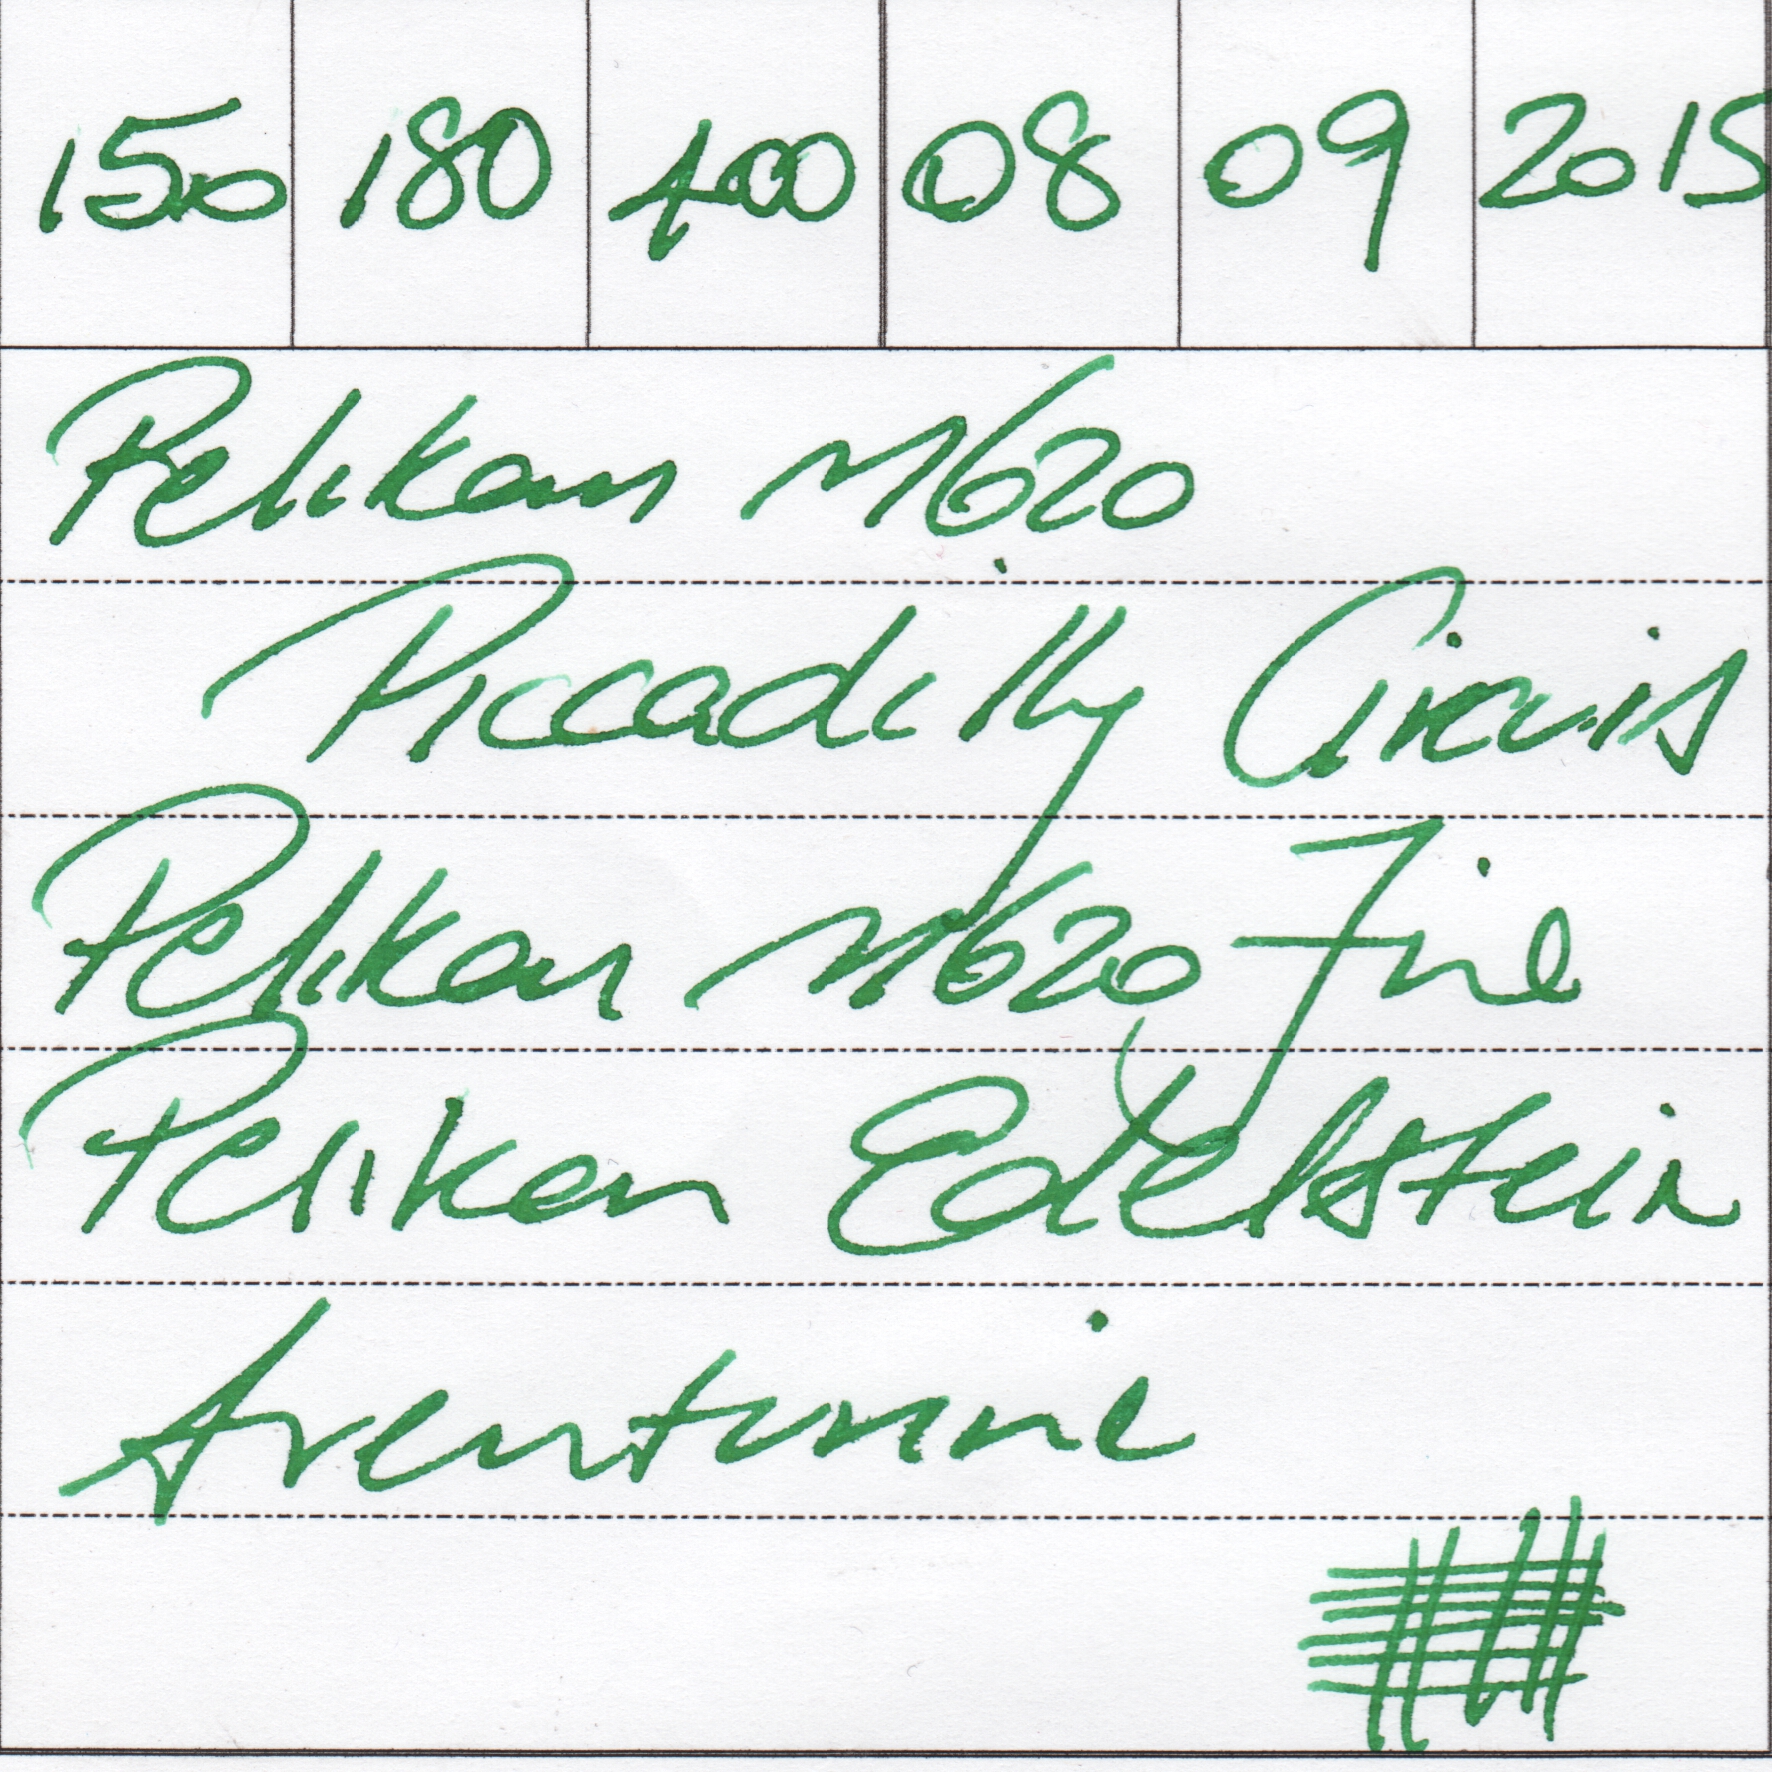 150 180 400 08 09 2015
Pelikan M620
Piccadilly Circus
Pelikan M620 Fine
Pelikan Edelstein
Aventurine